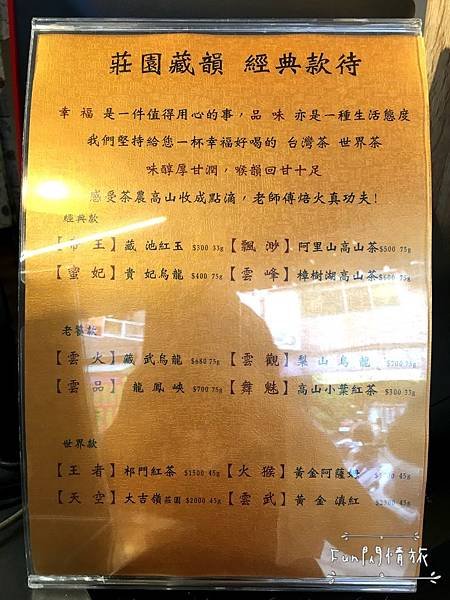 莊園藏韻 經典款待
幸 福 是一件值得用心的事，品 味 亦是一種生活態度
我們堅持給您一杯幸福好喝的 台灣茶 世界茶
味醇厚甘潤，喉韻回甘十足
感受茶農高山收成點滴，老師傅焙火真功夫!
經典款
【帝 王】藏 池紅玉 $300 33g 【飄 渺】阿里山高山茶$500 75g
【蜜 妃】貴 妃烏龍 $400 75g 【雲 峰】樟樹湖高山茶$600 75g
老饕款
【雲 火】藏 武烏龍 $680 75g 【雲 觀】梨 山 烏 龍 $700 75g
【雲 品】龍 鳳 峽 $700 75g 【舞 魅】高山小葉紅茶 $300 33g
世界款
【王 者】祁門紅茶 $1500 45g 【火 猴】黃金阿薩姆 45g
【天 空】大吉嶺莊園 $2000 45g 【雲 武】黃 金 滇紅 45g
Fun閃情旅